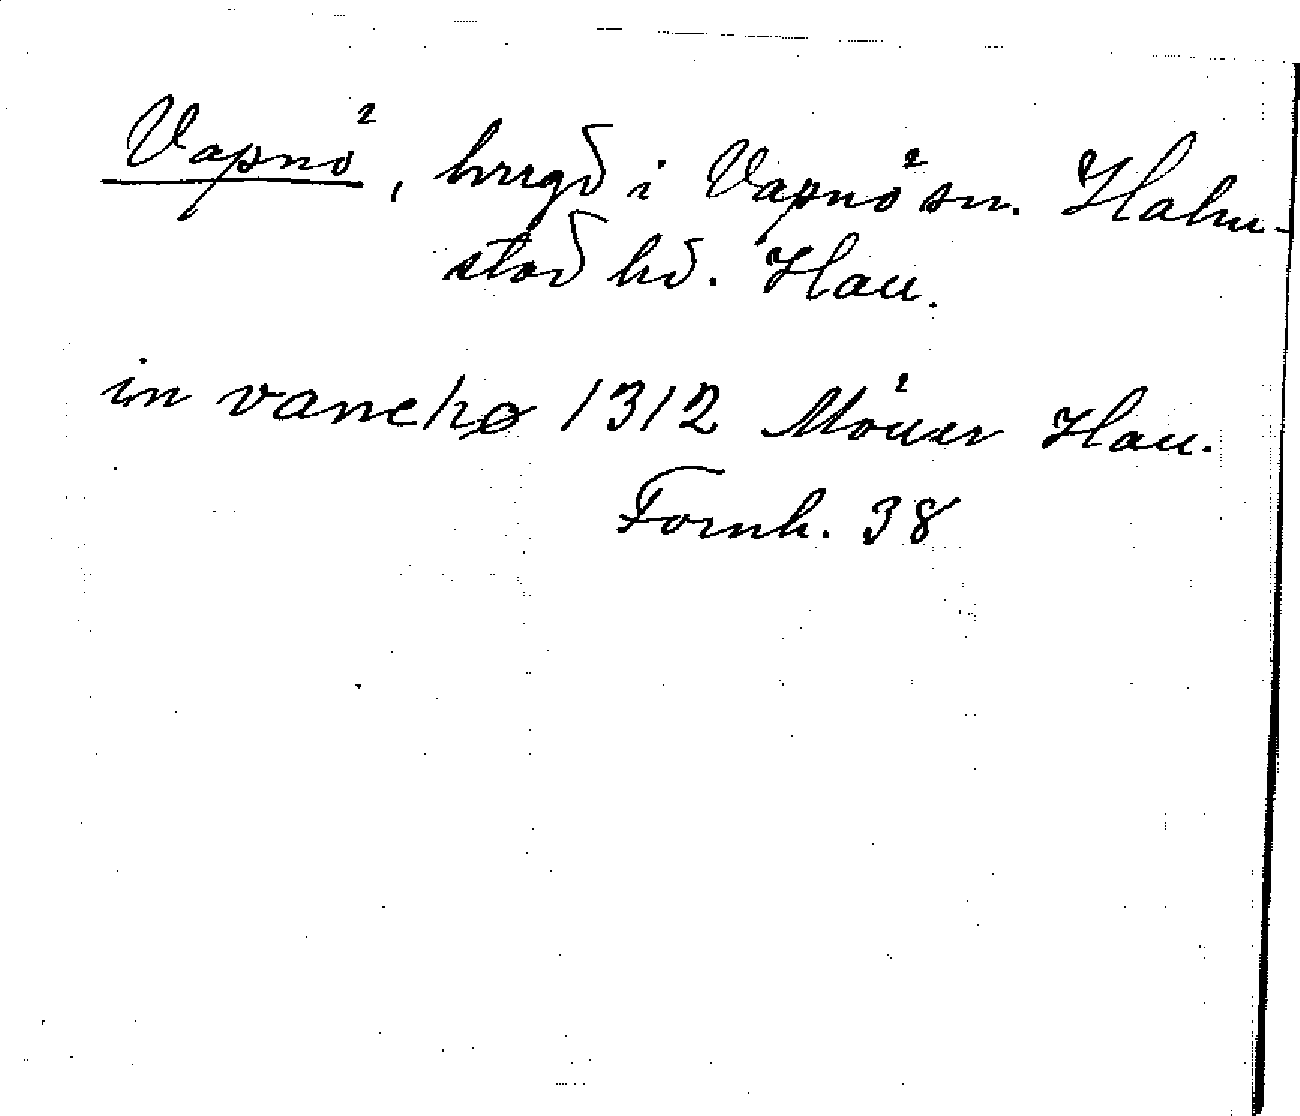 Vapnö, hrrgd i Vapnö sn. Halm-
stad hd. Hall.
in vanehø 1312 Möller Hall.
Fornh. 38